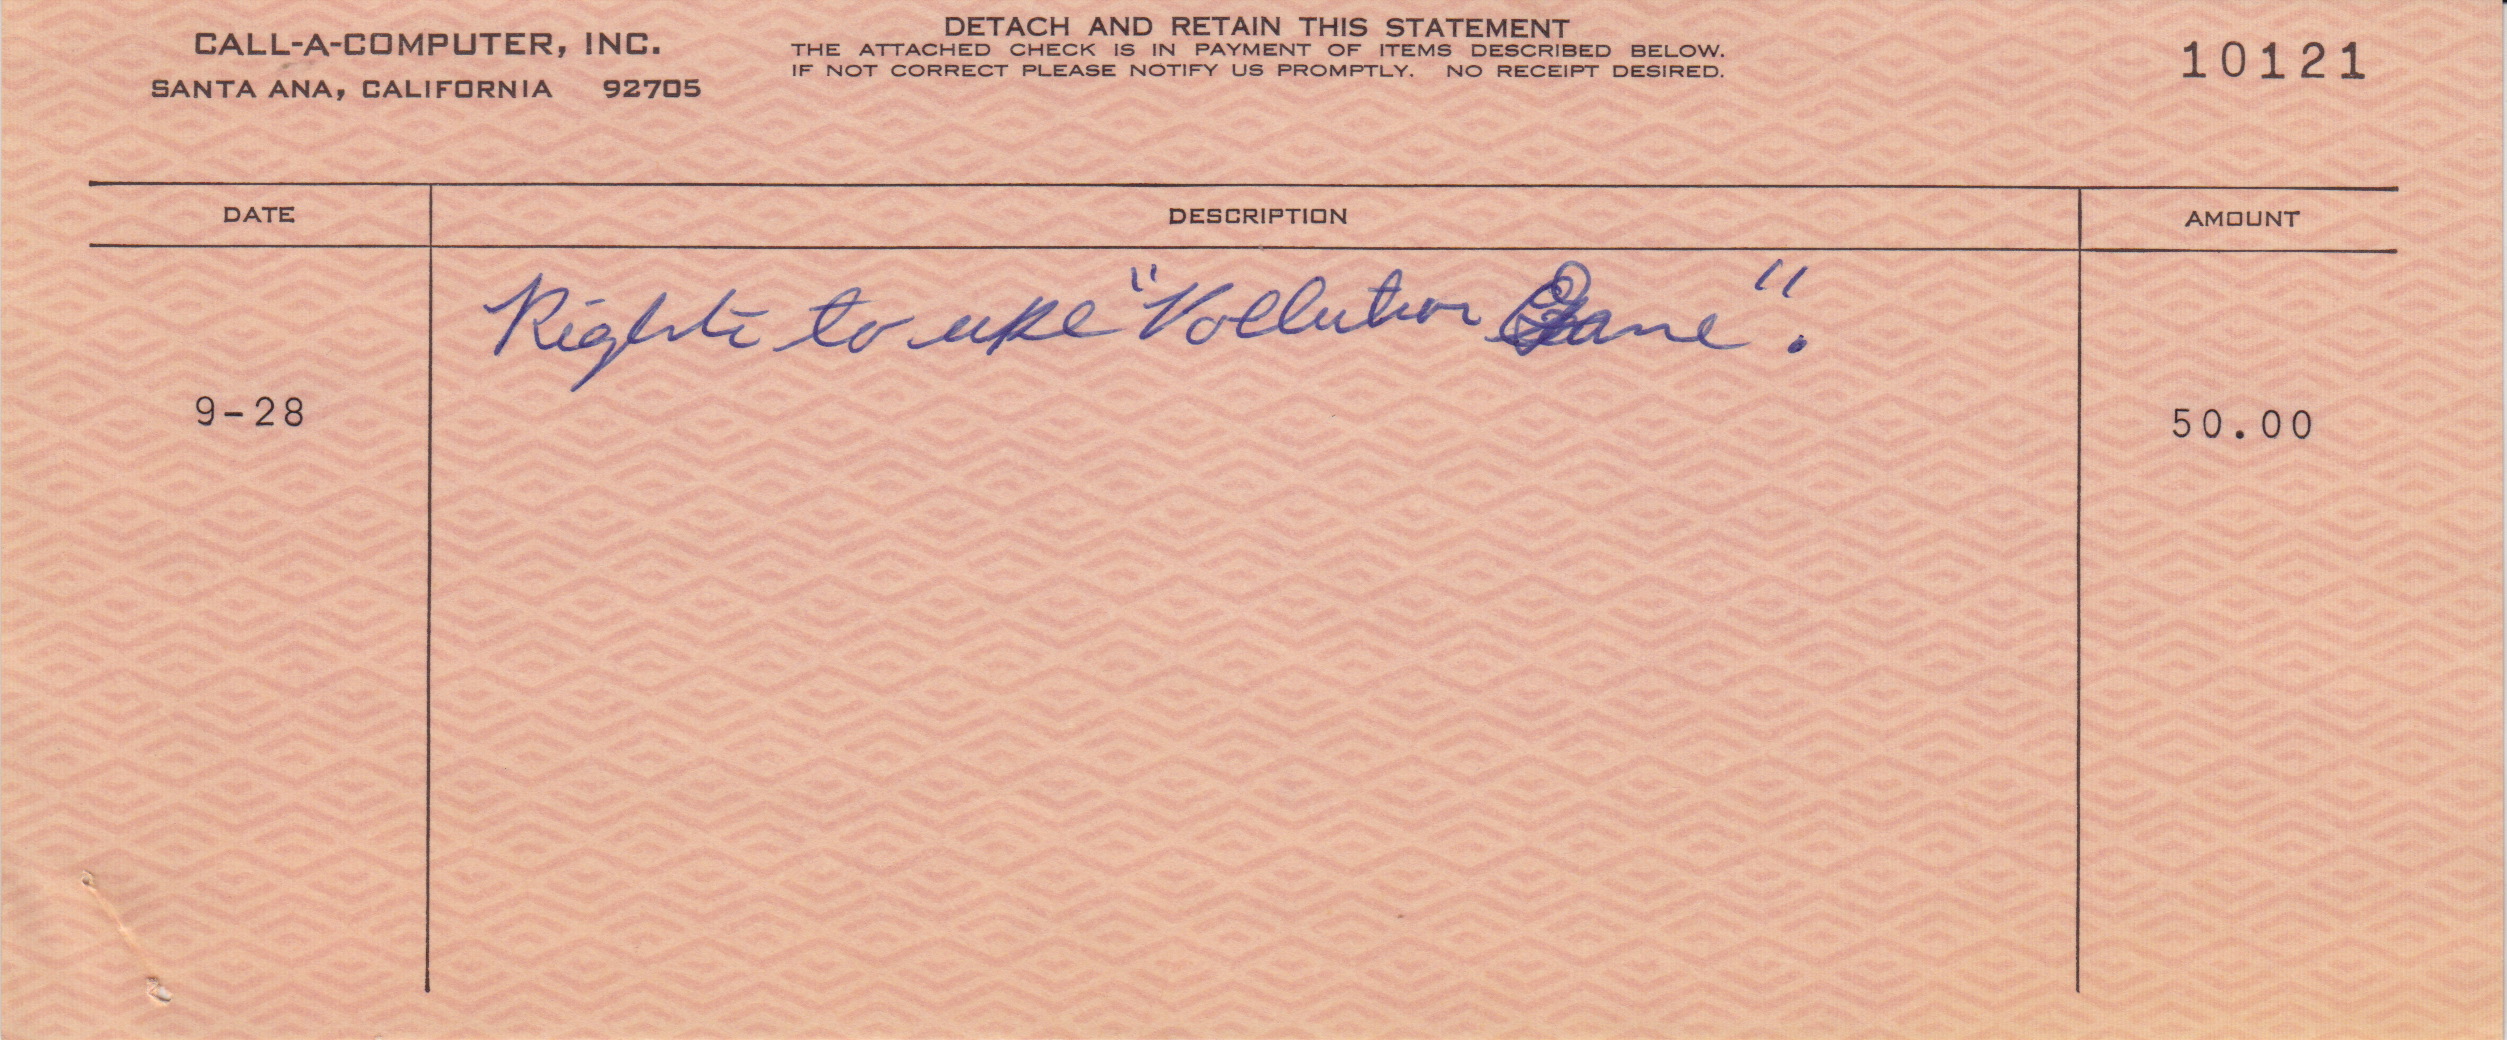 CALL-A-COMPUTER, INC.
SANTA ANA, CALIFORNIA 92705
DETACH AND RETAIN THIS STATEMENT
THE ATTACHED CHECK IS IN PAYMENT OF ITEMS DESCRIBED BELOW.
IF NOT CORRECT PLEASE NOTIFY US PROMPTLY. NO RECEIPT DESIRED.
10121
DATE DESCRIPTION AMOUNT
Rights to use "Pollution Game".
9-28 50.00